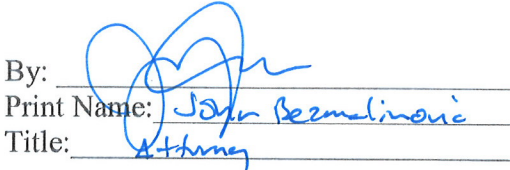 By:
Print Name: John Bezmalinovic
Title: Attorney